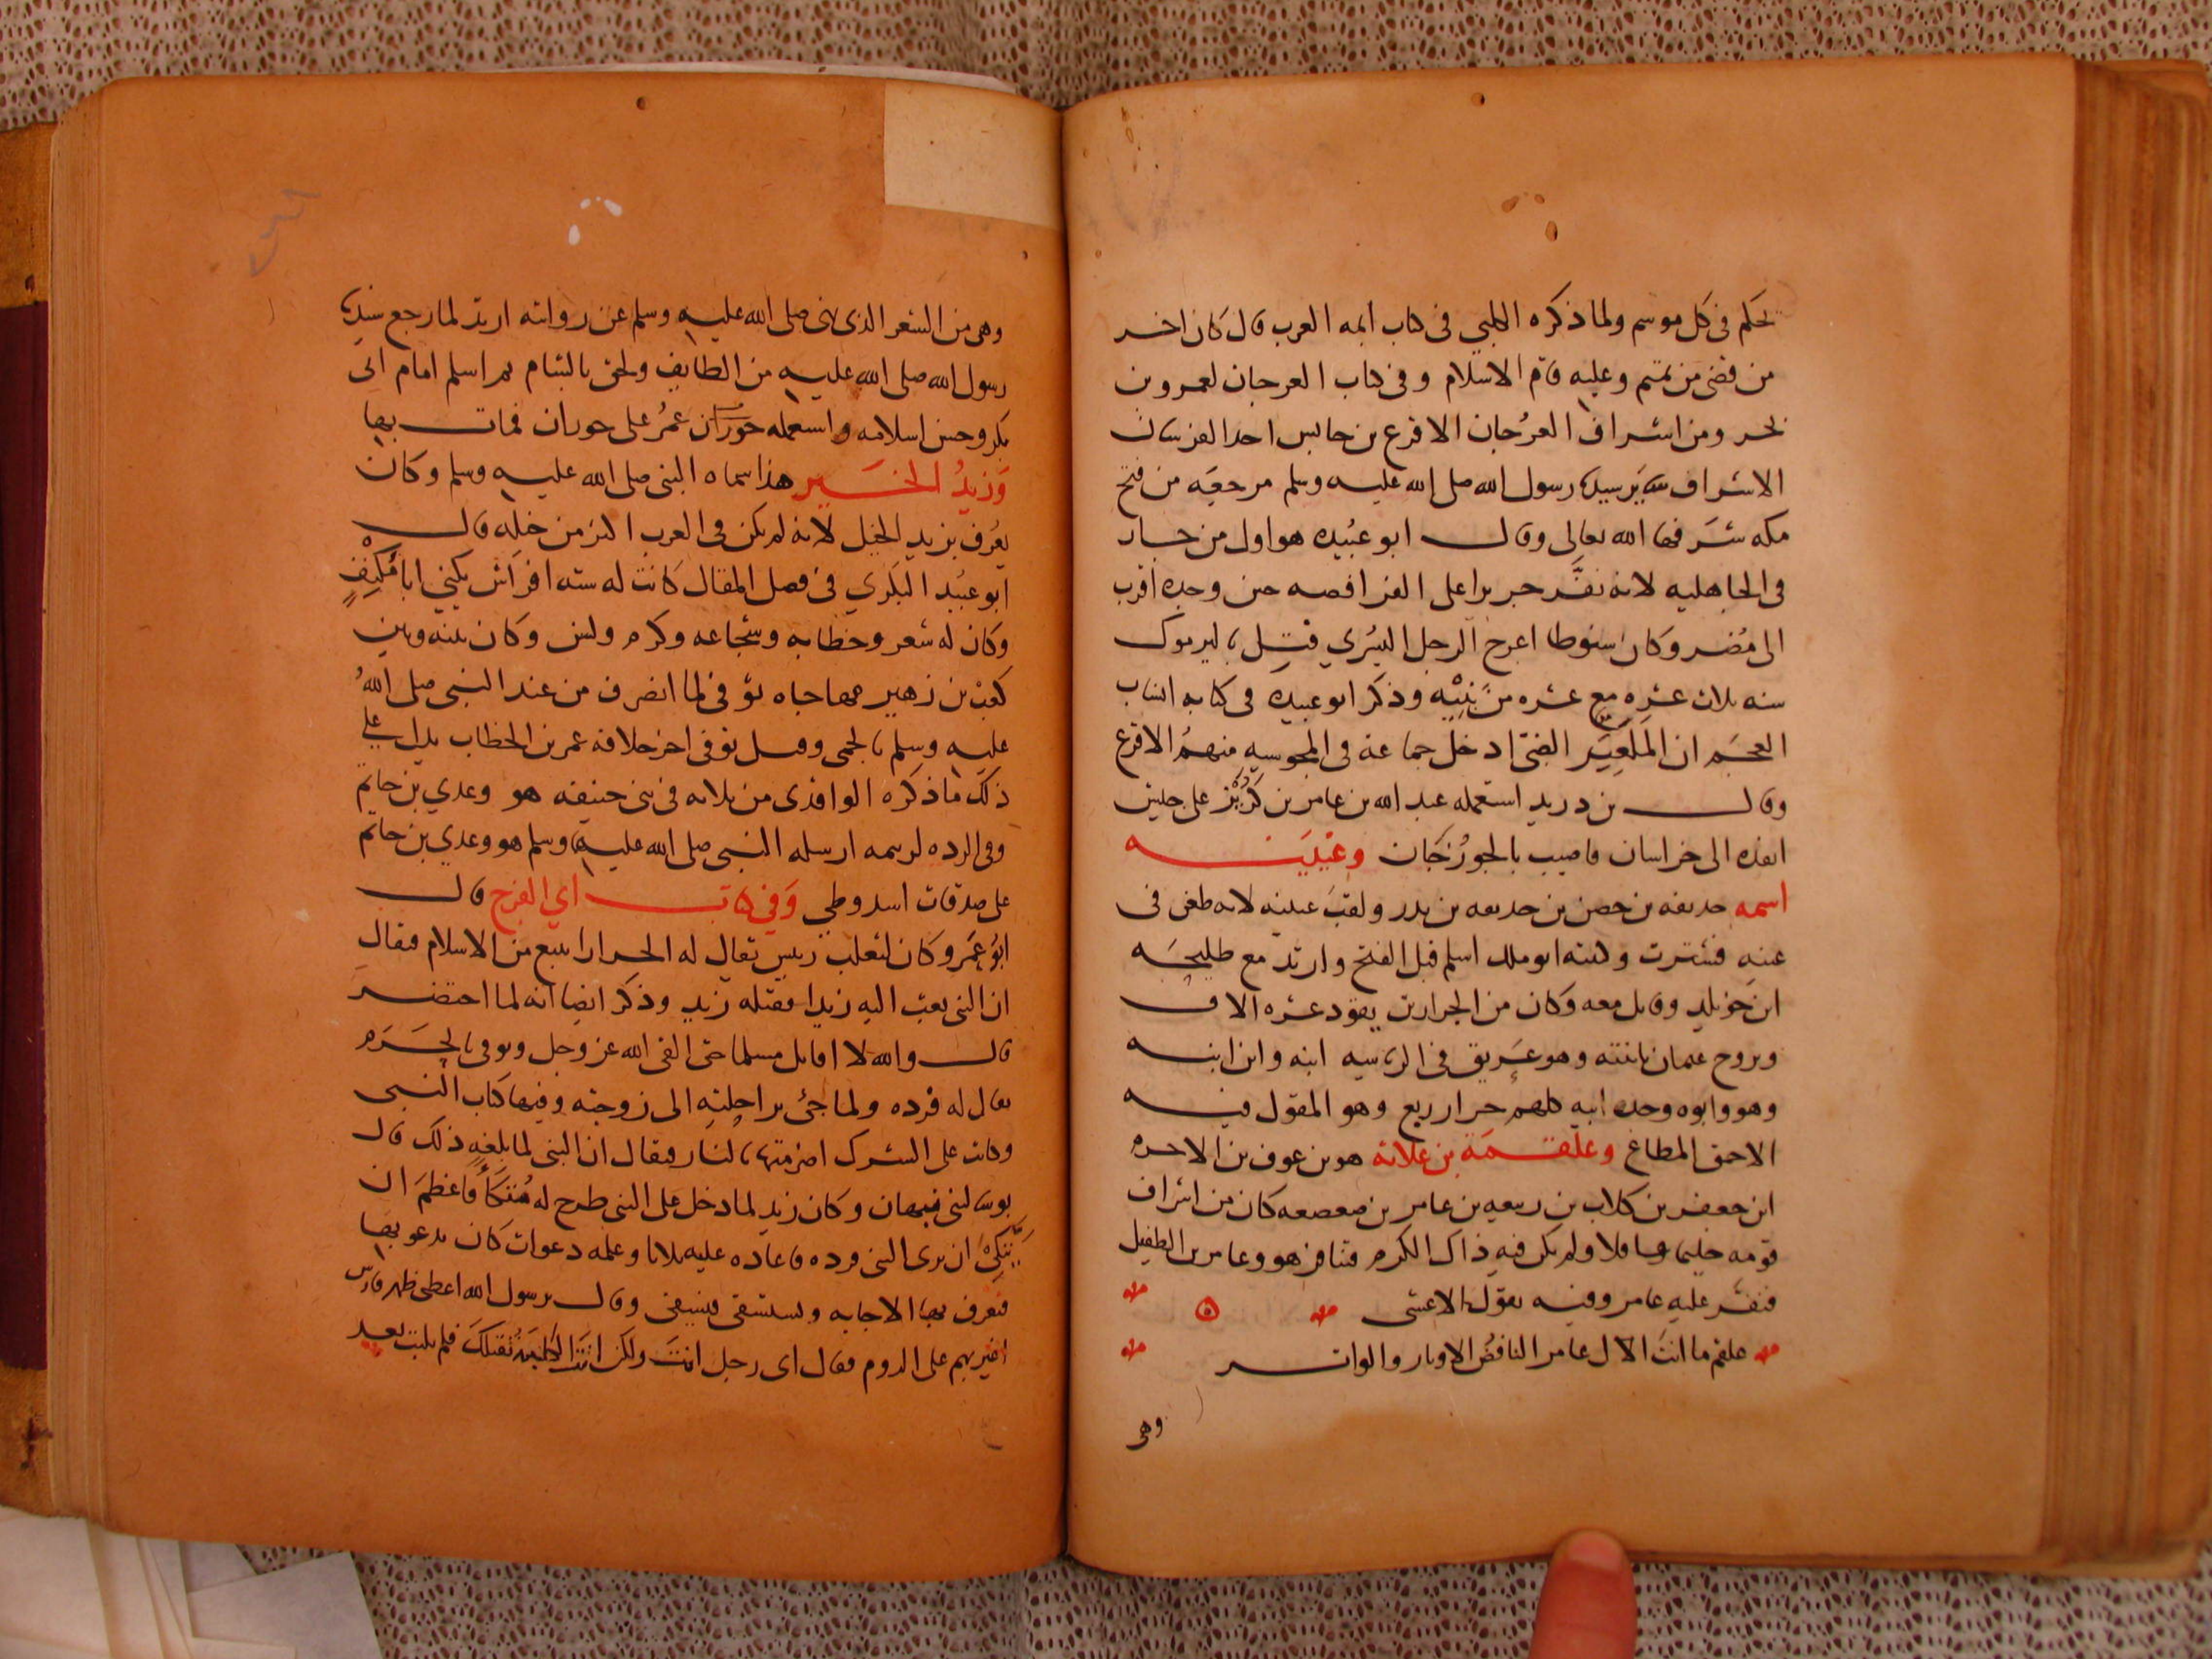 يحكم فى كل موسم ولما ذكره الكلبي فى كتاب ائمه العرب قال كان اخر
من قضى من تميم وعليه قام الاسلام وفى كتاب العرجان لعمرو بن
بحر ومن اشراف العُرجان الاقرع بن حابس احد الفرسان
الاشراف رسول الله صلى الله عليه وسلم مرجعَه من فتح
مكه شرفها الله تعالى وقال ابو عبيده هو اول من جار
فى الجاهليه لانه نفّر جريرا على الفرافصه حين وجده اقرب
الى مُضر وكان سنوطا اعرج الرجل اليُسرى قتل باليرموك
سنه ثلاث عشره مع عشره من بنيه وذكر ابو عبيده فى كتابه انساب
العجم ان المكعبر الضبى ادخل جماعة فى المجوسيه منهم الاقرع
وقال بن دريد استعمله عبد الله بن عامر بن كريز على جيش
انفذه الى خراسان فاصيب بالجوزجان وعيينه
اسمه حذيفه بن حصن بن حذيفه بن بدر ولقب عيينه لانه طعن فى
عينه فشترت وكنيته ابو ملك اسلم قبل الفتح وارتد مع طليحه
ابن خويلد وقاتل معه وكان من الجرارين يقود عشره الاف
وتزوج عثمان بابنته وهو عريق فى الرياسيه ابنه وابن ابنه
وهو وابوه وجد ابيه كلهم جرار ربع وهو المقول فيه
الاحمق المطاع وعلقمة بن علاثة هو بن عوف بن الاحوص
ابن جعفر بن كلاب بن ربيعه بن عامر بن صعصعه كان من اشراف
قومه حليما عاقلا ولم يكن فيه ذاك الكرم فتنافر هو وعامر بن الطفيل
فنفّر عليه عامر وفيه يقول الاعشى
علقم ما انت الا ل عامر الناقض الاوتار والواتر
وهى
وهى من الشعر الذى نهى صلى الله عليه وسلم عن روايته ارتد لما رجع سيدنا
رسول الله صلى الله عليه من الطايف ولحق بالشام ثم اسلم ايام ابى
بكر وحسن اسلامه واستعمله عمر على حوران فمات بها
وَزيدُ الخير هذا سماه النبى صلى الله عليه وسلم وكان
يُعرف بزيد الخيل لانه لم يكن فى العرب اكثر من خيله قال
ابو عبيد البكري فى فصل المقال كانت له سته افراس يكنى ابا مُكْنِف
وكان له شعر وخطابه وشجاعه وكرم ولسن وكان بينه وبين
كعب بن زهير مهاجاه توفى لما انصرف من عند النبى صلى الله
عليه وسلم بالحمى وقيل توفى اخر خلافه عمر بن الخطاب يدل على
ذلك ما ذكره الواقدى من بلائه فى بنى حنيفه هو وعدي بن حاتم
وفى الرده لوسيمه ارسله النبى صلى الله عليه وسلم هو وعدي بن حاتم
على صدقات اسد وطي وَفي كتاب ابي الفرج قال
ابو عمرو وكان لتعلب رييس يقال له الجرار امتنع من الاسلام فيقال
ان النبى بعث اليه زيدا فقتله زيد وذكر ايضا انه لما احتضر
قال والله لا اقاتل مسلما حتى القى الله عز وجل وتوفى بالحَرَم
يقال له فرده ولما جئ براحلته الى زوجته وفيها كتاب النبى
وكانت على الشرك اضرمتها بالنار فيقال ان النبى لما بلغه ذلك قال
بوسا لبنى نبهان وكان زيد لما دخل على النبى طرح له مُتّكأً فاعظم ان
يتكئ ان يرى النبى فرده فاعاده عليه ثلاثا وعلمه دعوات كان يدعو بها
فتعرف بها الاجابه ويستسقى فيسقى وقال يرسول الله اعطنى ظهر فارس
اغير بهم على الروم فقال اى رجل انت ولكن الكلبة تقتلك فلم يلبث بعد